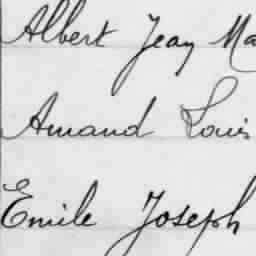 Albert Jean Ma
Amand Louis
Emile Joseph